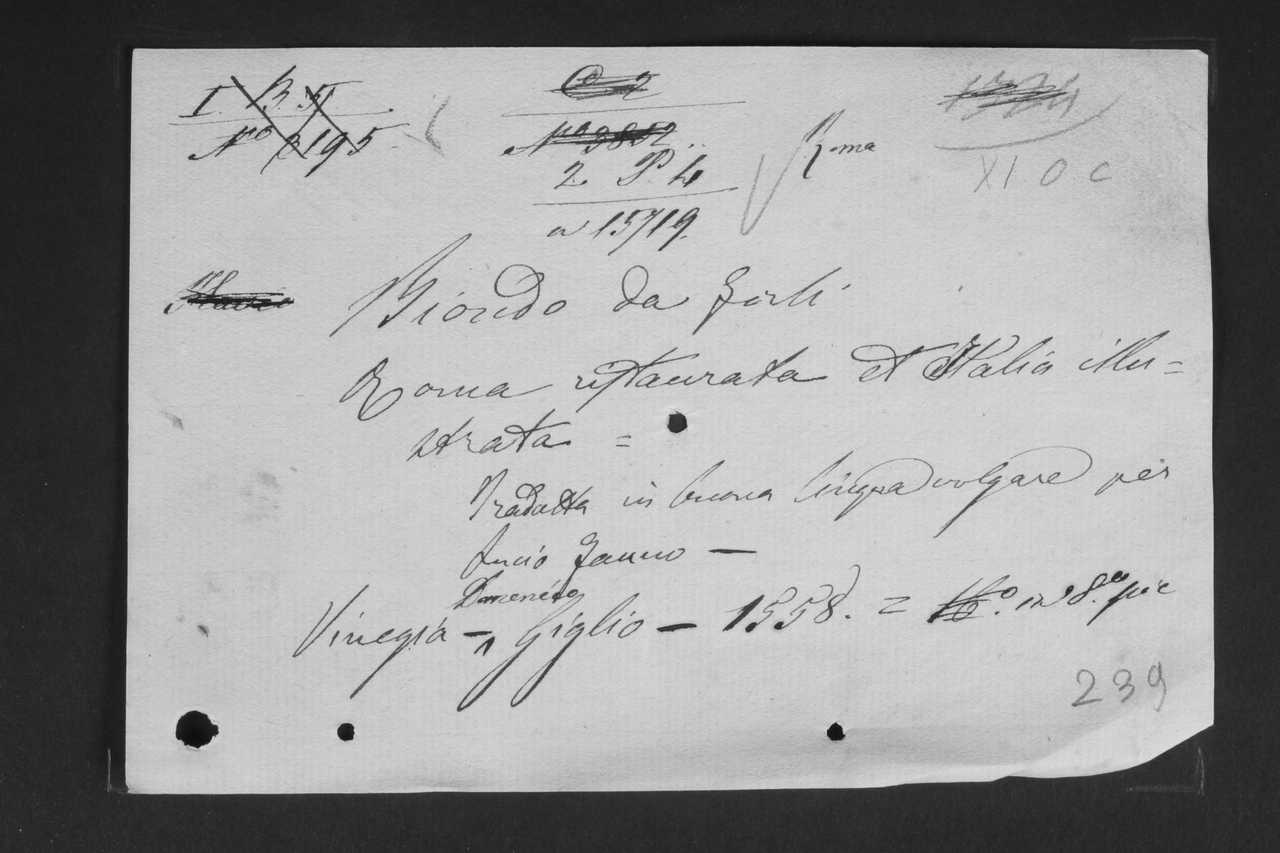 I. B. 51
No 6195
Ca 2
No 3852
2. P. 4
a 15719.
Roma
XI O C
Biondo da Forlì
Roma ristaurata et Italia illu=
strata =
Tradotta in buona lingua volgare per
Lucio Fauno —
Domenico
Vinegia — Giglio — 1558. = 16.o in 8.o pic
239